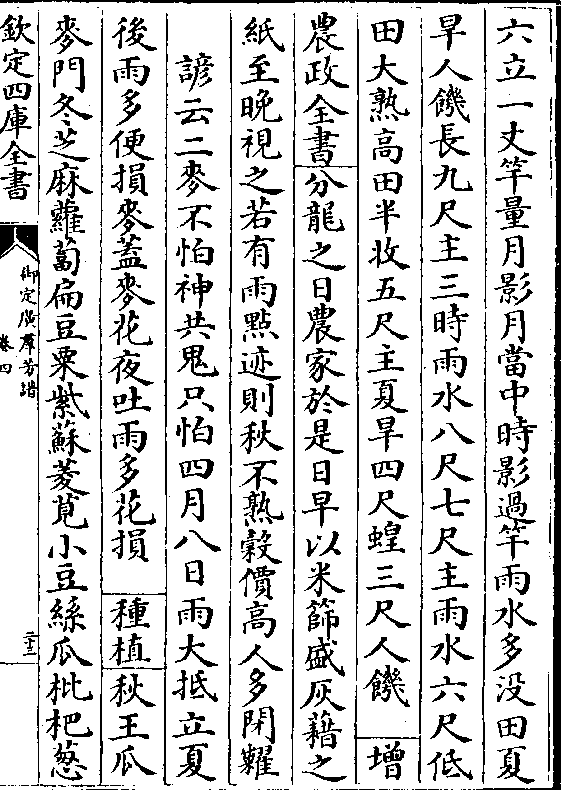 六立一丈竿量月影月當中時影過竿雨水多没田夏
旱人饑長九尺主三時雨水八尺七尺主雨水六尺低
田大熟高田半收五尺主夏旱四尺蝗三尺人饑 增
農政全書分龍之日農家於是日早以米篩盛灰藉之
紙至晚視之若有雨點迹則秋不熟榖價高人多閉糶
諺云二麥不怕神共鬼只怕四月八日雨大抵立夏
後雨多便損麥蓋麥花夜吐雨多花損 種植秋王瓜
麥門冬芝麻蘿蔔扁豆粟紫蘇菱莧小豆絲瓜枇杷葱
欽定四庫全書
御定廣羣芳譜
卷四
二十三